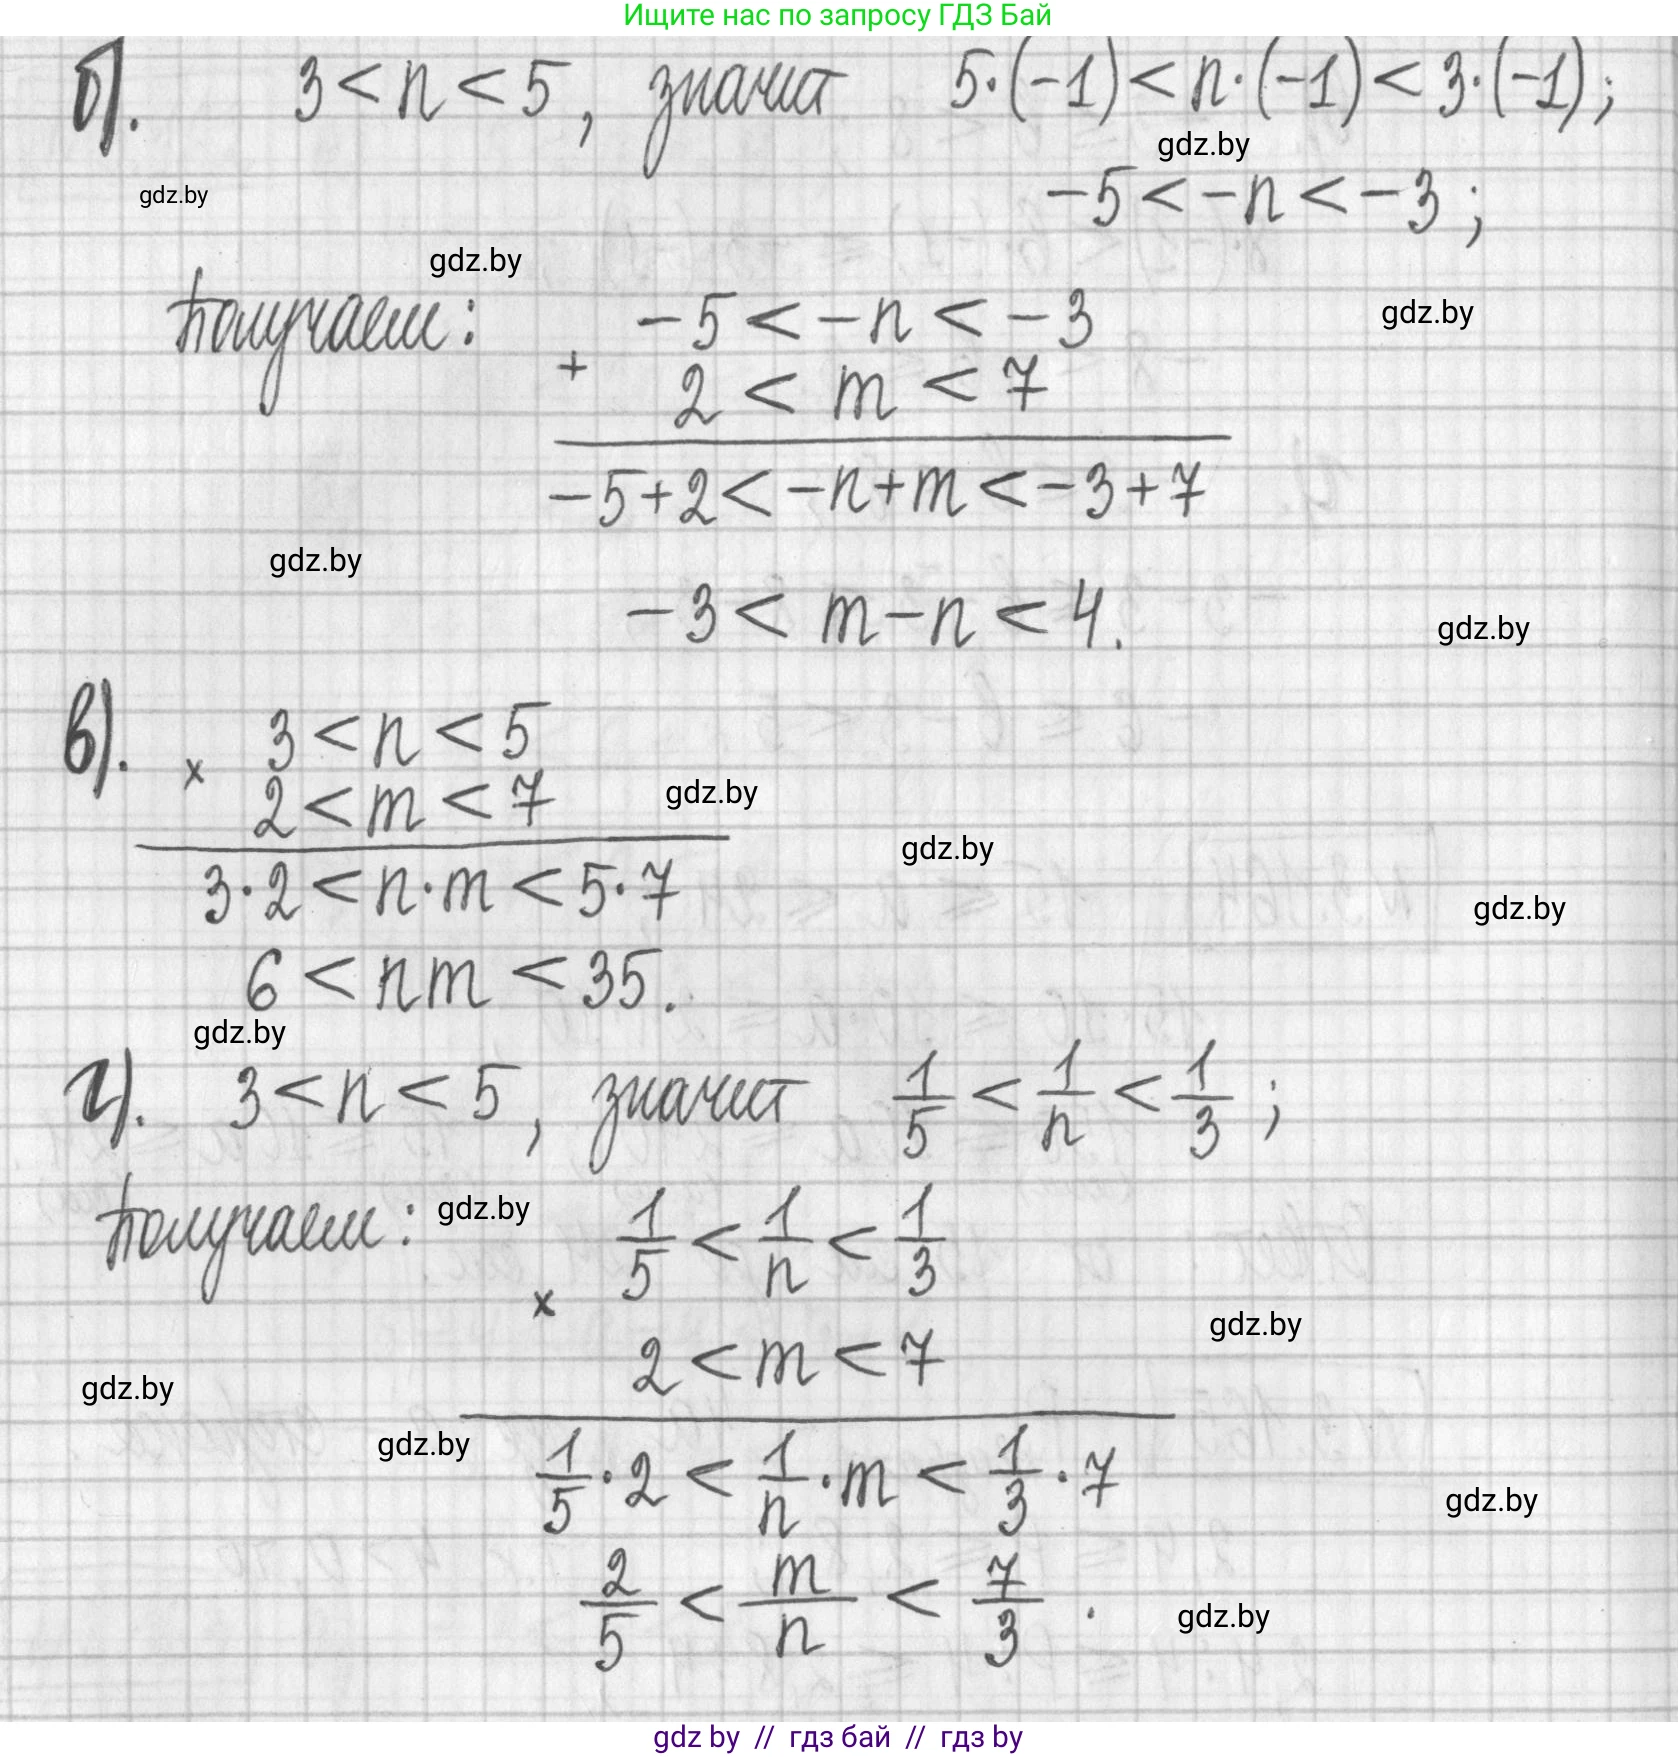 Ищите нас по запросу ГДЗ Бай
б). 3 < n < 5, значит 5·(-1) < n·(-1) < 3·(-1);
gdz.by
-5 < -n < -3;
gdz.by
gdz.by
Получаем: -5 < -n < -3
gdz.by
+ 2 < m < 7
-5+2 < -n+m < -3+7
gdz.by
-3 < m-n < 4.
gdz.by
в). 3 < n < 5
×
2 < m < 7
gdz.by
gdz.by
3·2 < n·m < 5·7
gdz.by
6 < nm < 35.
gdz.by
г). 3 < n < 5, значит 1/5 < 1/n < 1/3;
Получаем: gdz.by 1/5 < 1/n < 1/3
×
gdz.by
2 < m < 7
gdz.by
gdz.by
1/5 · 2 < 1/n · m < 1/3 · 7
gdz.by
2/5 < m/n < 7/3.
gdz.by
gdz by // гдз бай // гдз by